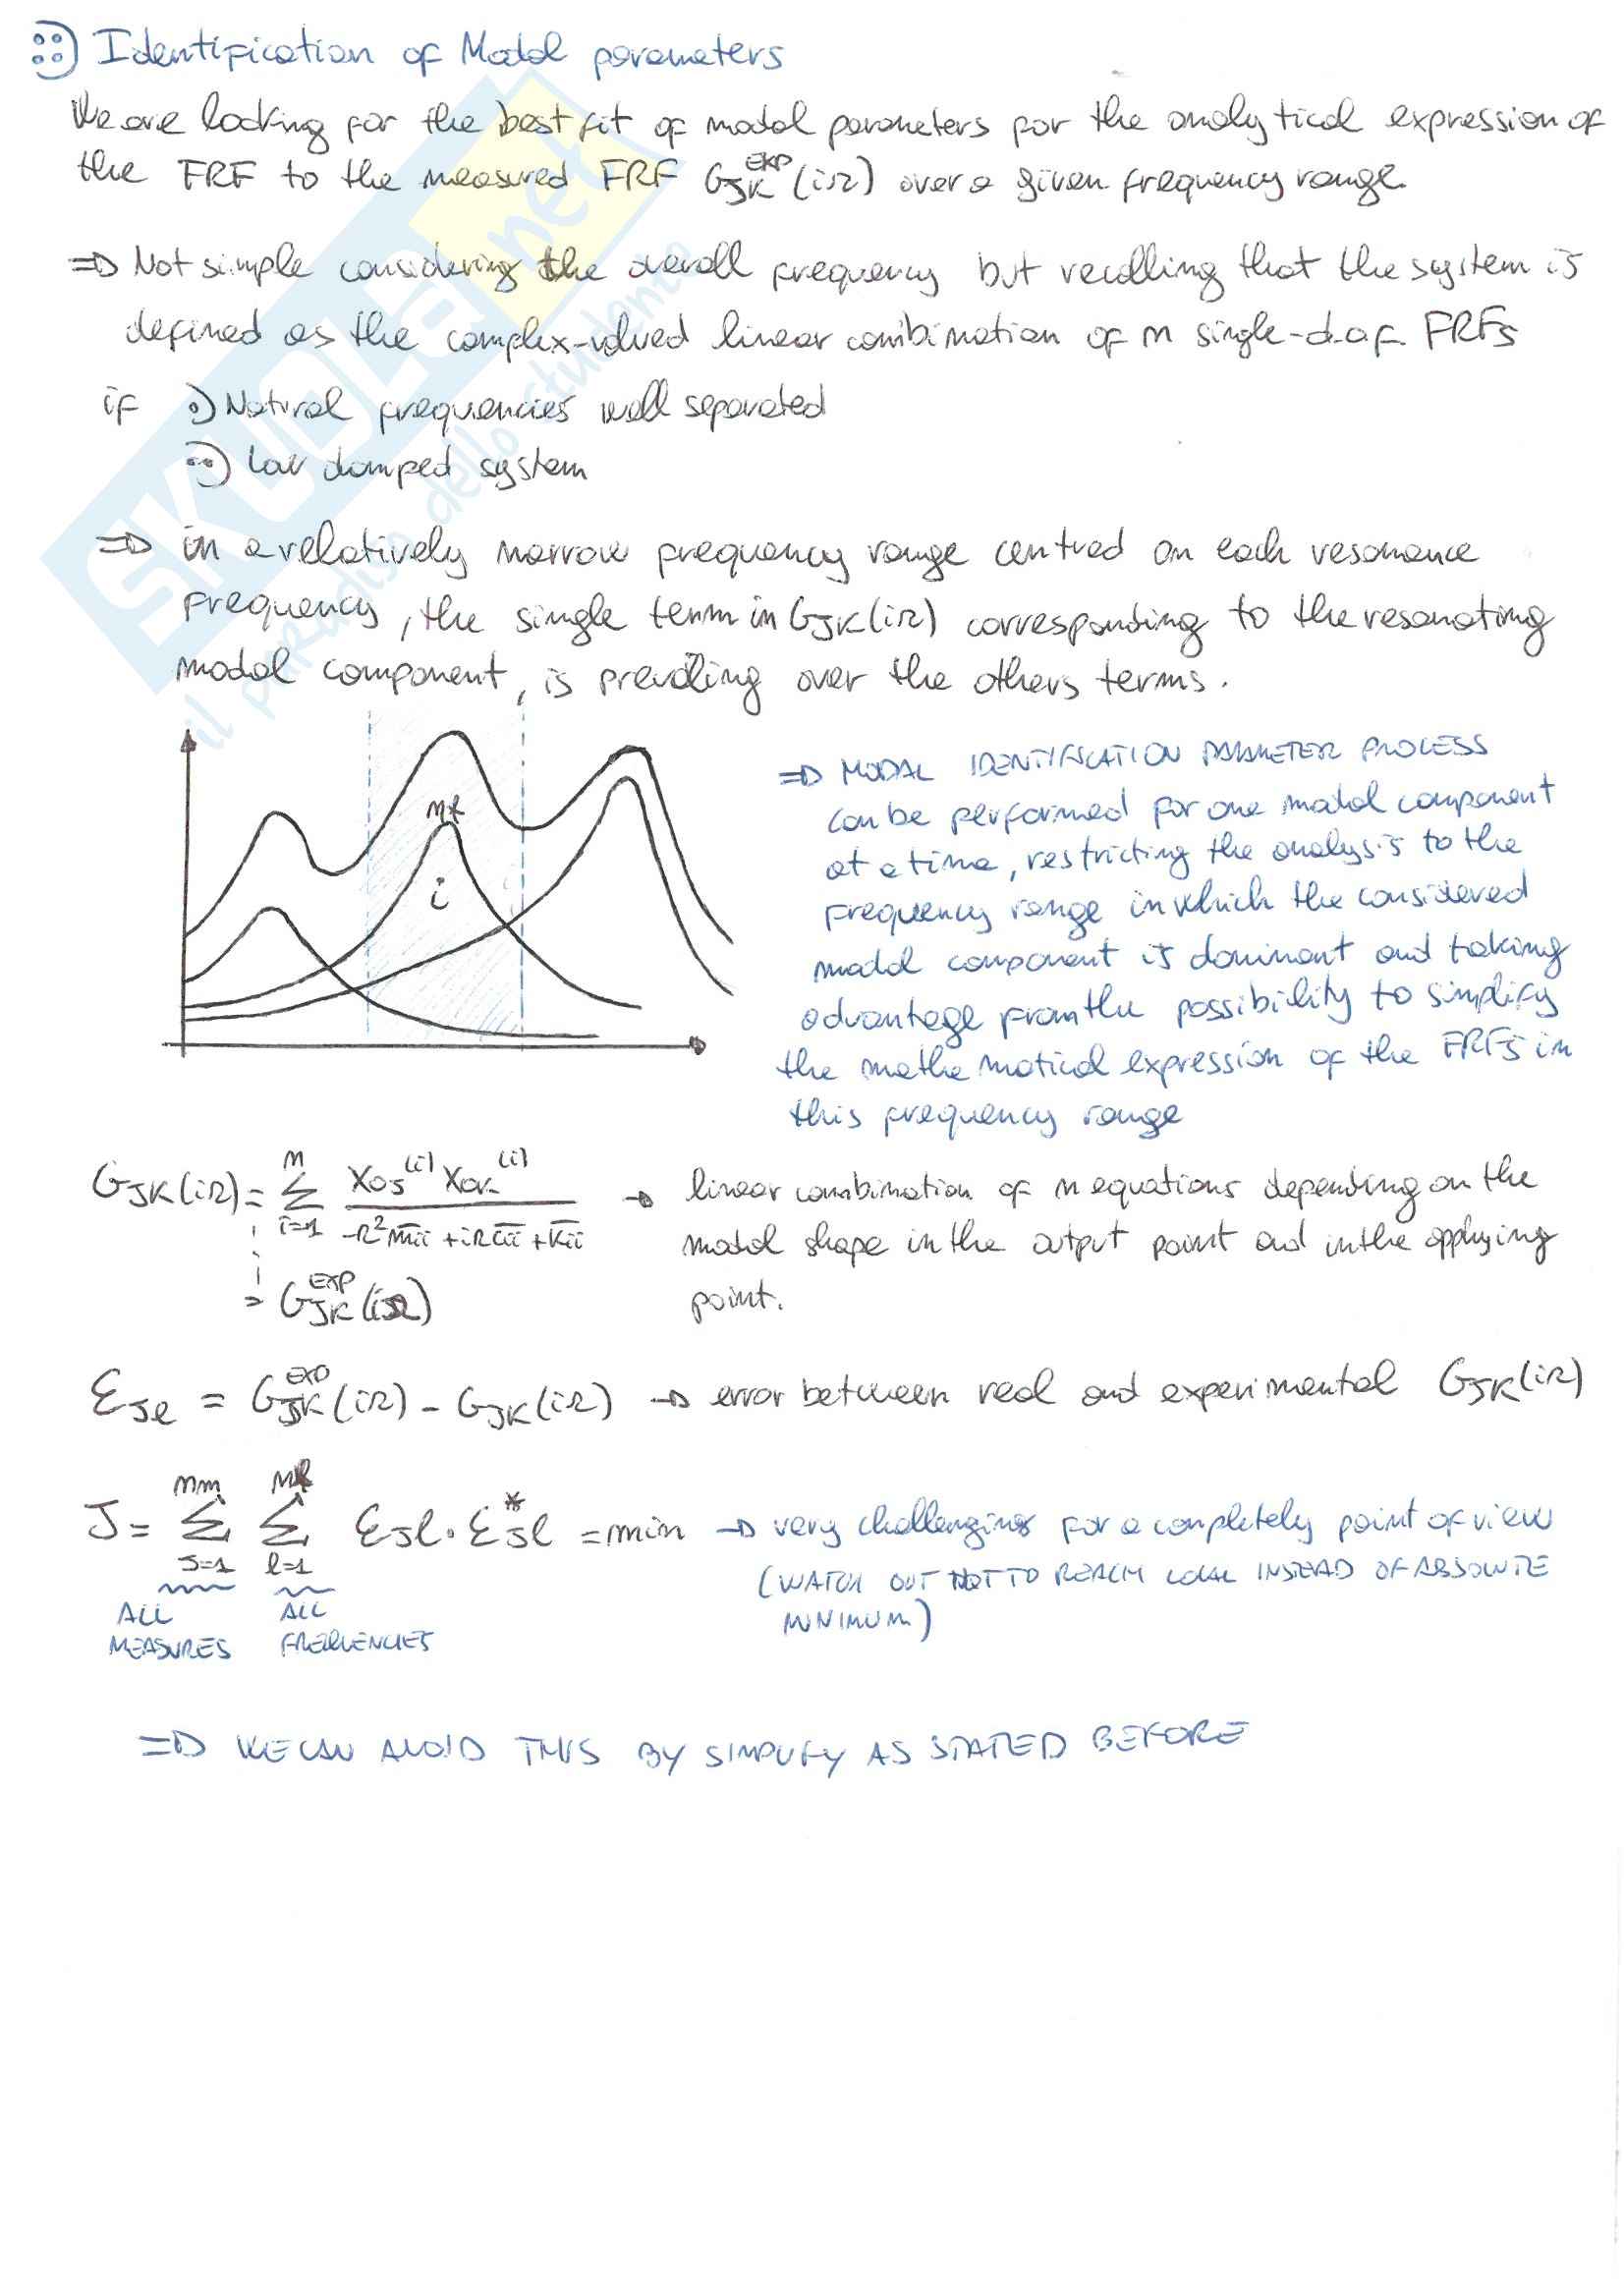 ::) Identification of Modal parameters
We are looking for the best fit of modal parameters for the analytical expression of
the FRF to the measured FRF G_JK^EXP (iΩ) over a given frequency range
=> Not simple considering the overall frequency but recalling that the system is
defined as the complex-valued linear combination of n single-d.o.f. FRFs
if •) Natural frequencies well separated
••) Low damped system
=> in a relatively narrow frequency range centred on each resonance
frequency, the single term in G_JK(iΩ) corresponding to the resonating
modal component, is prevailing over the others terms.
i
=> MODAL IDENTIFICATION PARAMETER PROCESS
can be performed for one modal component
at a time, restricting the analysis to the
frequency range in which the considered
modal component is dominant and taking
advantage from the possibility to simplify
the mathematical expression of the FRFs in
this frequency range
G_JK(iΩ) = Σ_{i=1}^{n} X_0J^(i) X_0K^(i) / (-Ω² m̅ii + iΩ c̅ii + k̅ii) → linear combination of n equations depending on the
modal shape in the output point and in the applying
point.
= G_JK^EXP (iΩ)
ε_Jl = G_JK^EXP (iΩ) - G_JK(iΩ) → error between real and experimental G_JK(iΩ)
J = Σ_{J=1}^{nm} Σ_{l=1} ε_Jl · ε*_Jl = min → very challenging for a completely point of view
(WATCH OUT NOT TO REACH LOCAL INSTEAD OF ABSOLUTE
MINIMUM)
ALL MEASURES
ALL FREQUENCIES
=> WE CAN AVOID THIS BY SIMPLIFY AS STATED BEFORE
SKUOLA.net
il paradiso dello studente